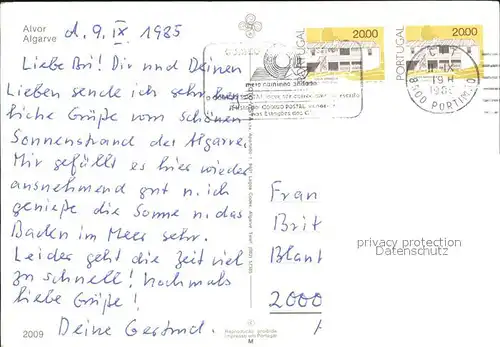 Alvor
Algarve
d. 9. IX 1985
Liebe Bri! Dir und Deinen
Lieben sende ich sehr herz
liche Grüße vom schönen
Sonnenstrand der Algarve.
Mir gefällt es hier wieder
ausnehmend gut u. ich
genieße die Sonne u. das
Baden im Meer sehr.
Leider geht die Zeit viel
zu schnell! Nochmals
liebe Grüße!
Deine Gertrud.
2009
PORTUGAL 20.00
PORTUGAL 20.00
CTT
19H
8500 PORTIMÃO
CÓDIGO POSTAL
Fran
Brit
Blant
2000
privacy protection
Datenschutz
Reprodução proibida
Impresso em Portugal
M